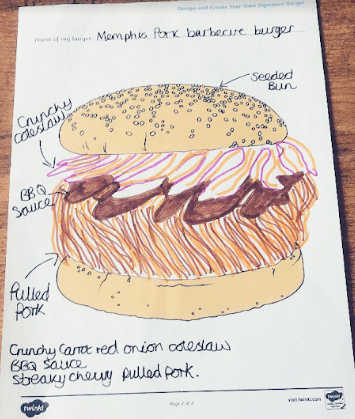 Design and Create Your Own Signature Burger
Name of my burger: Memphis Pork barbecue burger
Seeded
Bun
Crunchy
coleslaw
BBQ
Sauce
Pulled
Pork
Crunchy Carrot red onion coleslaw
BBQ Sauce
Streaky chewy pulled Pork.
twinkl
Page 2 of 2
visit twinkl.com